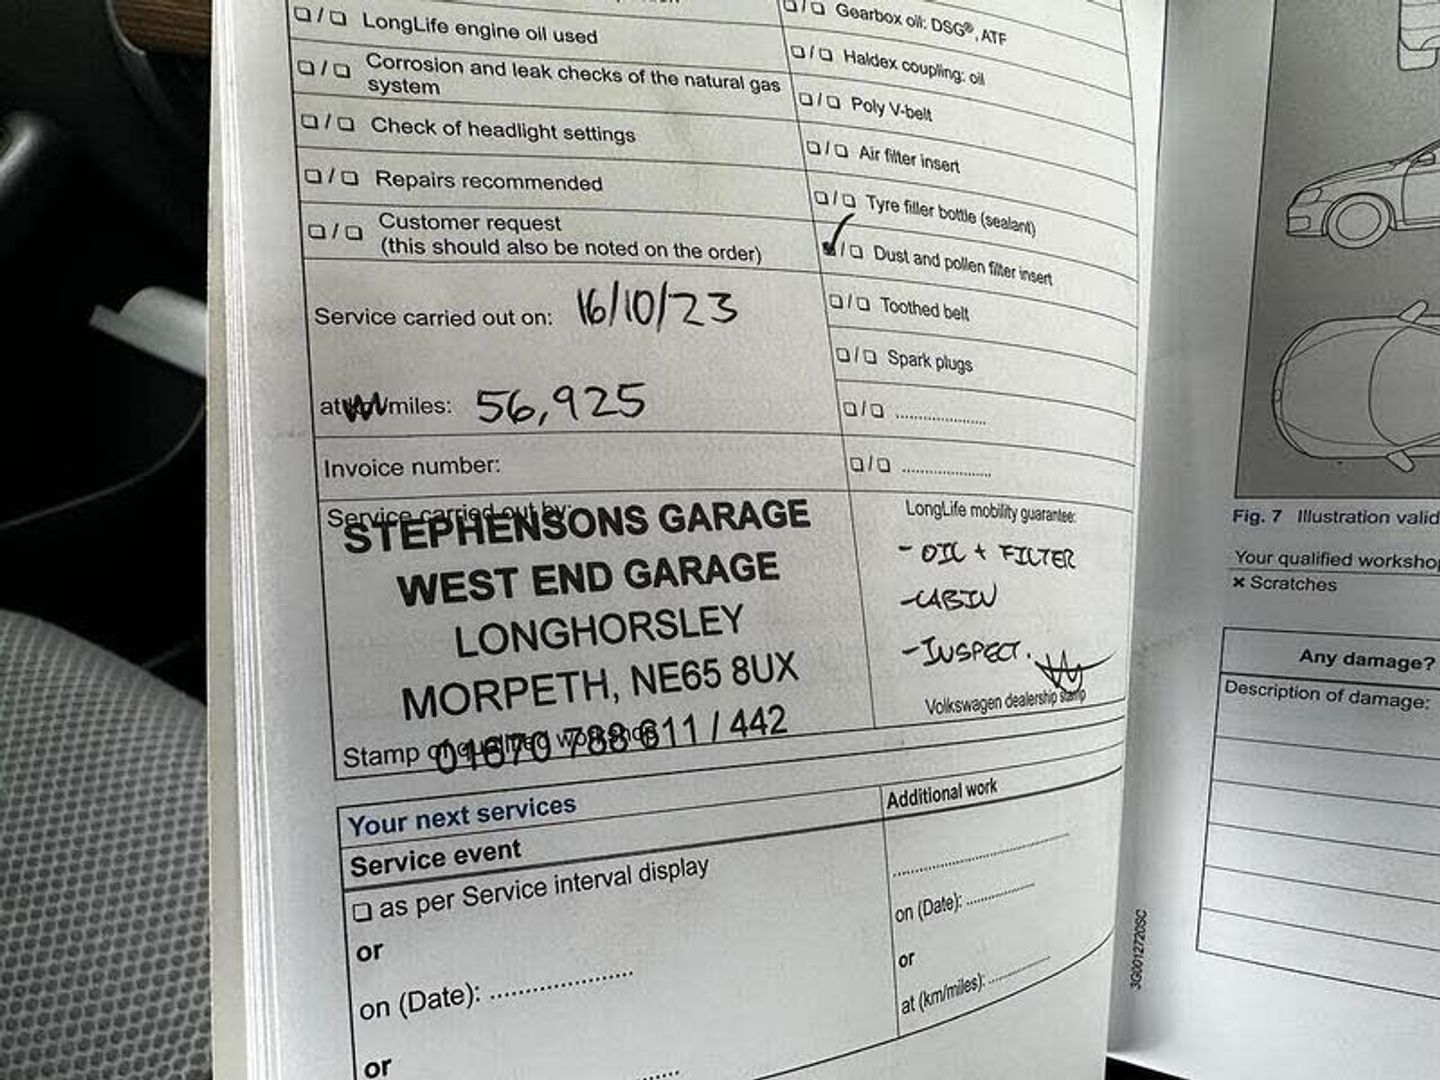 ❏ / ❏ LongLife engine oil used
❏ / ❏ Corrosion and leak checks of the natural gas
system
❏ / ❏ Check of headlight settings
❏ / ❏ Repairs recommended
❏ / ❏ Customer request
(this should also be noted on the order)
Service carried out on: 16/10/23
at km/miles: 56,925
Invoice number:
Service carried out by:
STEPHENSONS GARAGE
WEST END GARAGE
LONGHORSLEY
MORPETH, NE65 8UX
01670 788 611 / 442
Stamp of qualified workshop
❏ / ❏ Gearbox oil: DSG®, ATF
❏ / ❏ Haldex coupling: oil
❏ / ❏ Poly V-belt
❏ / ❏ Air filter insert
❏ / ❏ Tyre filler bottle (sealant)
✓ / ❏ Dust and pollen filter insert
❏ / ❏ Toothed belt
❏ / ❏ Spark plugs
❏ / ❏ ....................
❏ / ❏ ....................
LongLife mobility guarantee:
- OIL + FILTER
- CABIN
- INSPECT.
Volkswagen dealership stamp
Your next services
Service event
❏ as per Service interval display
or
on (Date): ....................
or
Additional work
....................
on (Date): ............
or
at (km/miles): ............
3G0012720SC
Fig. 7 Illustration valid
Your qualified workshop
× Scratches
Any damage?
Description of damage: